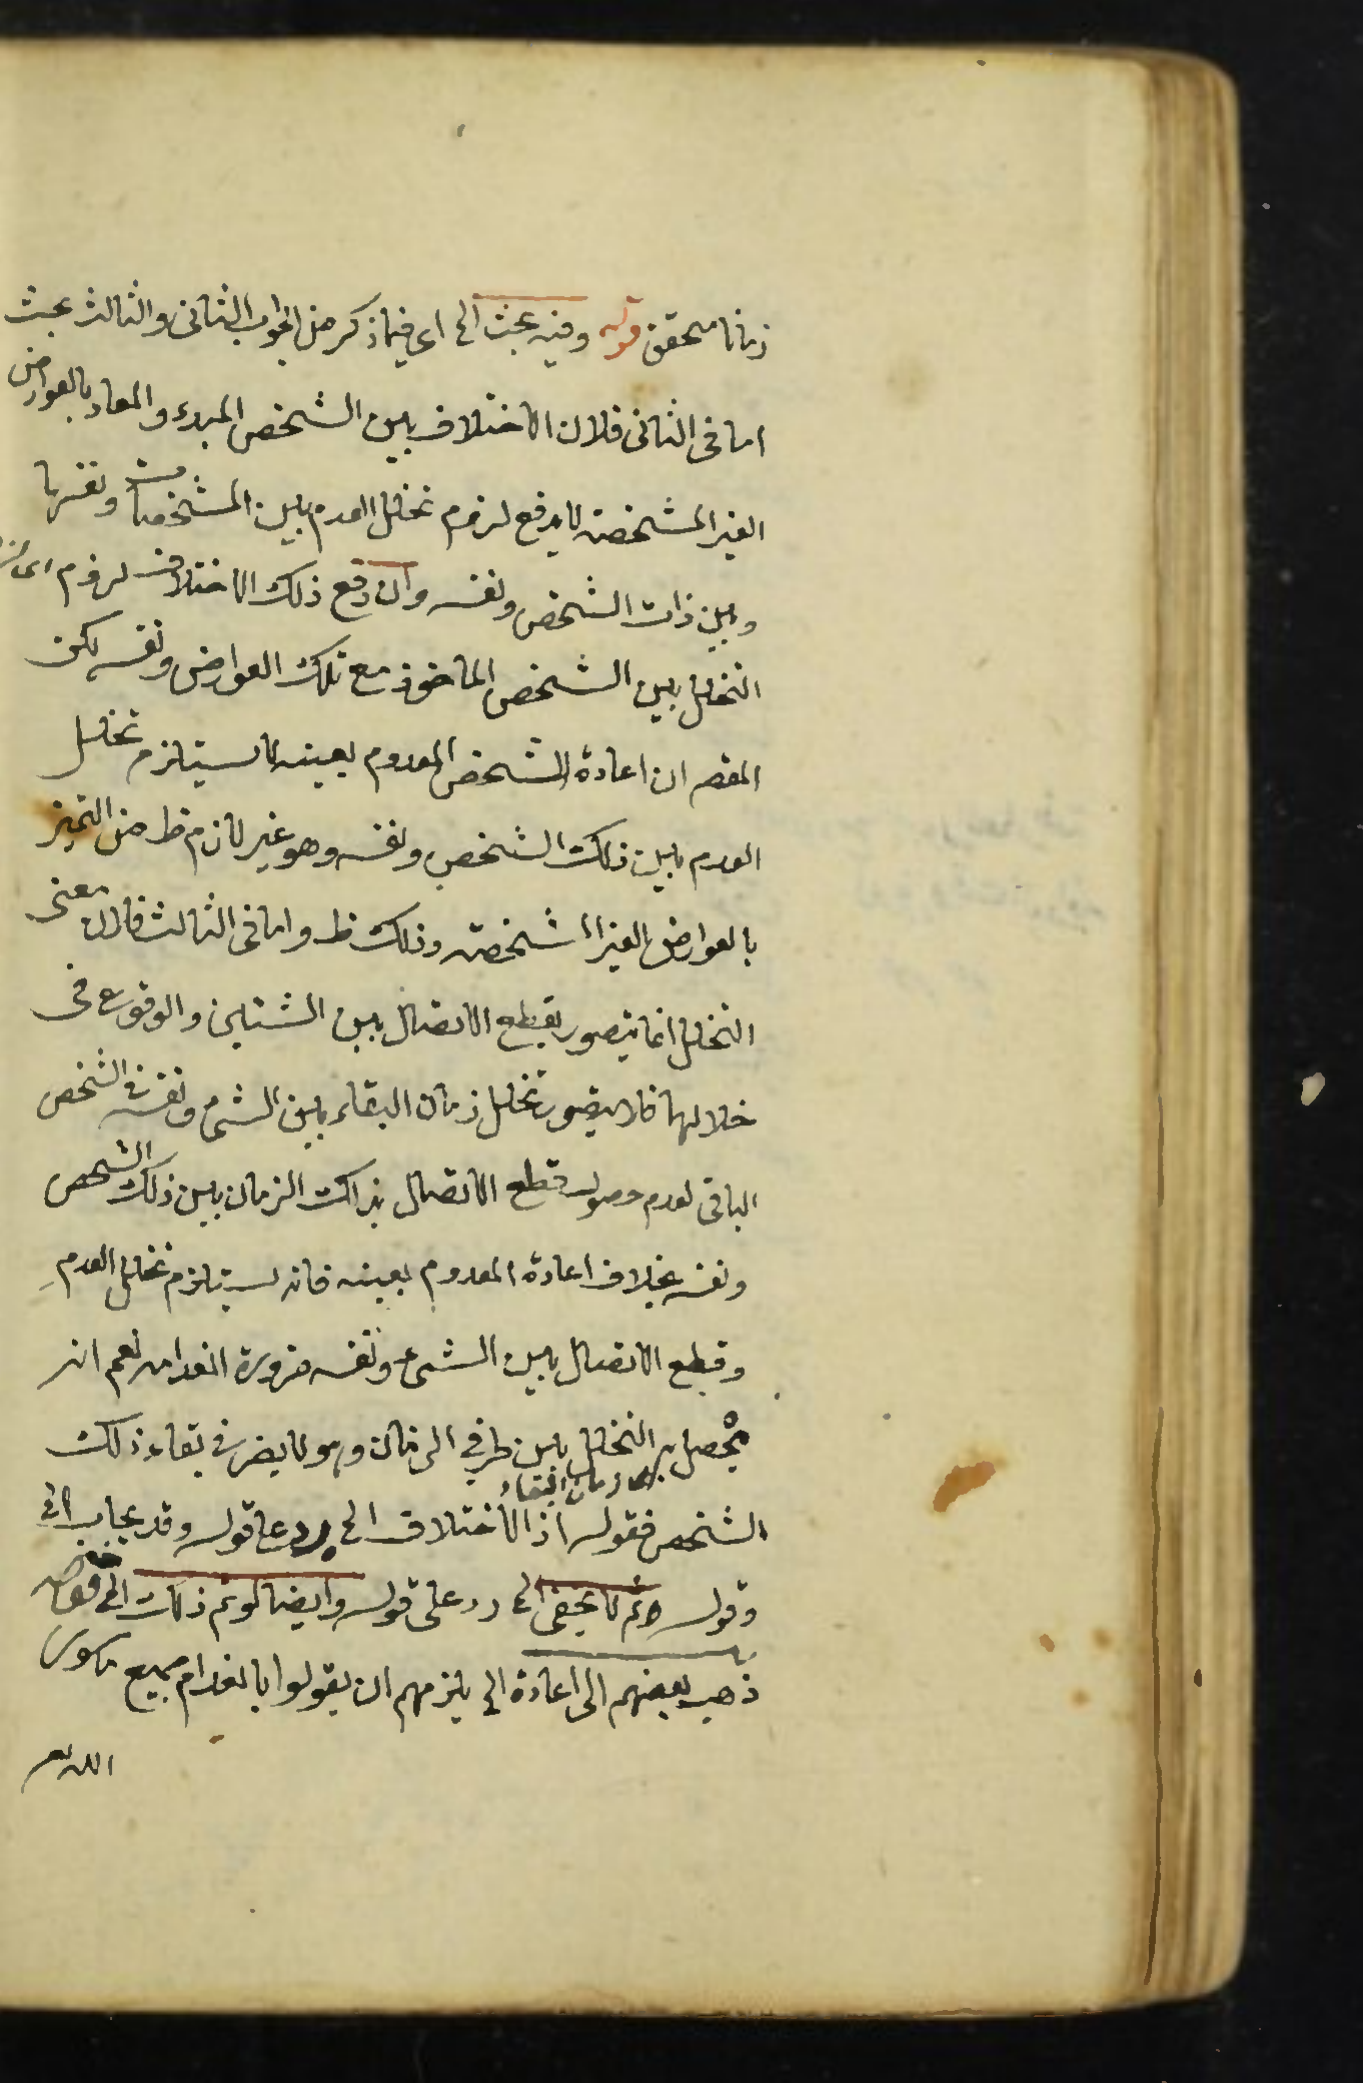 زمانا محقق قوله وفيه بحث الخ اى فيما ذكر من الجواب الثانى والثالث بحث
اما فى الثانى فلان الاختلاف بين الشخص المبدء والمعاد بالعوارض
الغير المشخصة لا يدفع لزوم تخلل العدم بين المشخصات ونفسها
وبين ذات الشخص ونفسه وان دفع ذلك الاختلاف لزوم
التخلل بين الشخص الماخوذ مع تلك العوارض ونفسه لكن
المقصـ ان اعادة الشخص المعدوم بعينه لا يستلزم تخلل
العدم بين ذلك الشخص ونفسه وهو غير لازم ظ من التميز
بالعوارض الغير المشخصة وذلك ظ واما فى الثالث فلان معنى
التخلل انما يتصور بقطع الاتصال بين الشيئين والوقوع فى
خلالهما فلا يتصور تخلل زمان البقاء بين الشىء ونفسه فى الشخص
الباقى لعدم حصول قطع الاتصال بذلك الزمان بين ذلك الشخص
ونفسه بخلاف اعادة المعدوم بعينه فانه يستلزم تخلل العدم
وقطع الاتصال بين الشىء ونفسه ضرورة انعدامه نعم انه
يحصل به التخلل بين طرفى الزمان وهو لا يضر فى بقاء ذلك
اى زمان البقاء
الشخص فقوله اذ الاختلاف الخ رد على قوله وقد يجاب الخ
وقوله ثم لا يخفى الخ رد على قوله وايضا لو تم ذلك الخ قوله
ذهب بعضهم الى اعادة الخ يلزمهم ان يقولوا بانعدام جميع ما سوى
الله تعـ